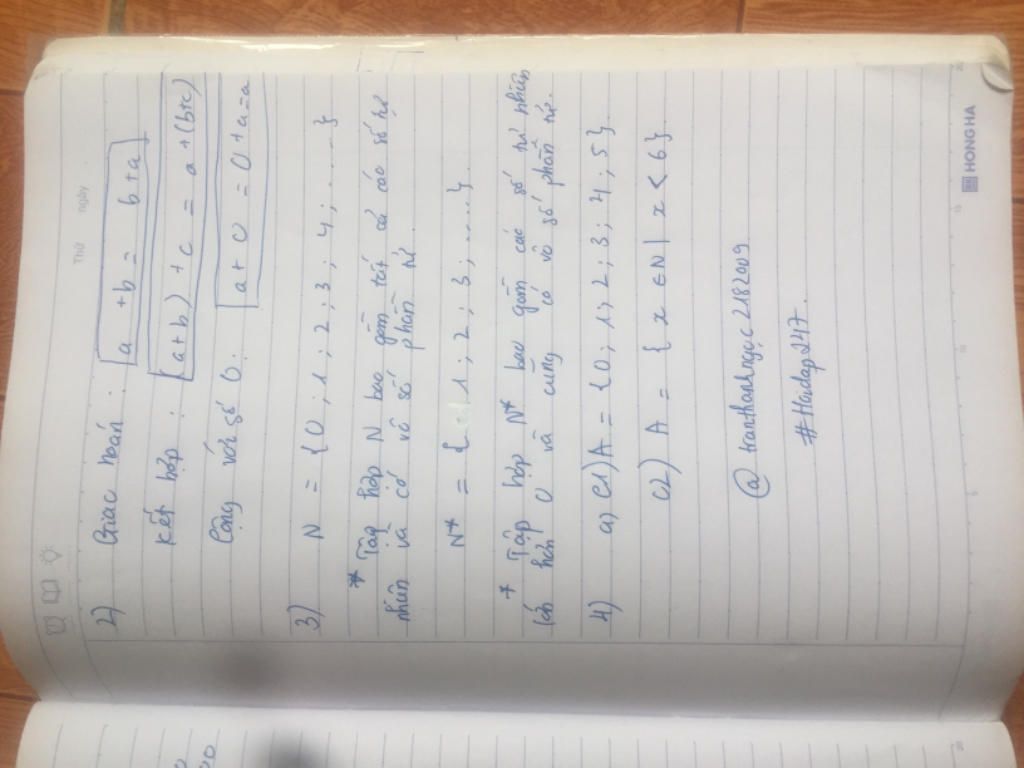 Thứ ngày
2) Giao hoán : a + b = b + a
Kết hợp : (a+b) + c = a + (b+c)
Cộng với số 0 : a + 0 = 0 + a = a
3) N = {0 ; 1 ; 2 ; 3 ; 4 ; .... }
* Tập hợp N bao gồm tất cả các số tự
nhiên và có vô số phần tử.
N* = { 1 ; 2 ; 3 ; .... }.
* Tập hợp N* bao gồm các số tự nhiên
lớn hơn 0 và cũng có vô số phần tử.
4) a, C1) A = {0 ; 1 ; 2 ; 3 ; 4 ; 5}.
C2) A = { x ∈ N | x < 6}.
@ tranthanhngọc2182009
#Hoidap247.
HONG HA